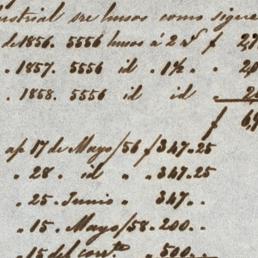 industrial de husos como sigue
de 1856. 5556 husos á 2 rs f 2,7
" 1857. 5556 id " 1½ " " 2,0
" 1858. 5556 id id " 2,0
f 6,9
ap 17 de Mayo/56 f 347.25
" 28 " id " " 347.25
" 25 " Junio " 347 " "
" 15 " Mayo/58 " 200 " "
" 15 del corrte " 500 " "